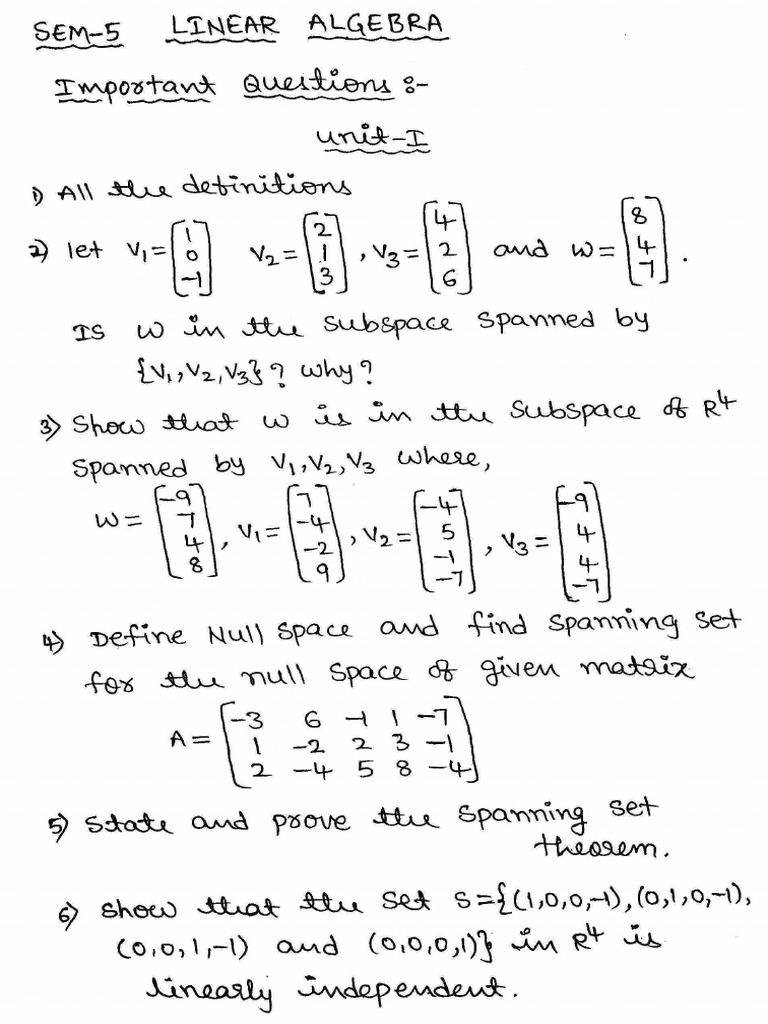 SEM-5 LINEAR ALGEBRA
Important Questions :-
unit-I
1) All the definitions
2) let V₁ = [1 0 -1] V₂ = [2 1 3], V₃ = [4 2 6] and w = [8 4 7].
Is w in the subspace spanned by
{V₁, V₂, V₃}? why?
3) Show that w is in the subspace of R⁴
spanned by V₁, V₂, V₃ where,
w = [-9 7 4 8], V₁ = [7 -4 -2 9], V₂ = [-4 5 -1 -7], V₃ = [-9 4 4 -7]
4) Define Null space and find spanning set
for the null space of given matrix
A = [-3 6 -1 1 -7
1 -2 2 3 -1
2 -4 5 8 -4]
5) State and prove the spanning set
theorem.
6) show that the set S={(1,0,0,-1), (0,1,0,-1),
(0,0,1,-1) and (0,0,0,1)} in R⁴ is
linearly independent.